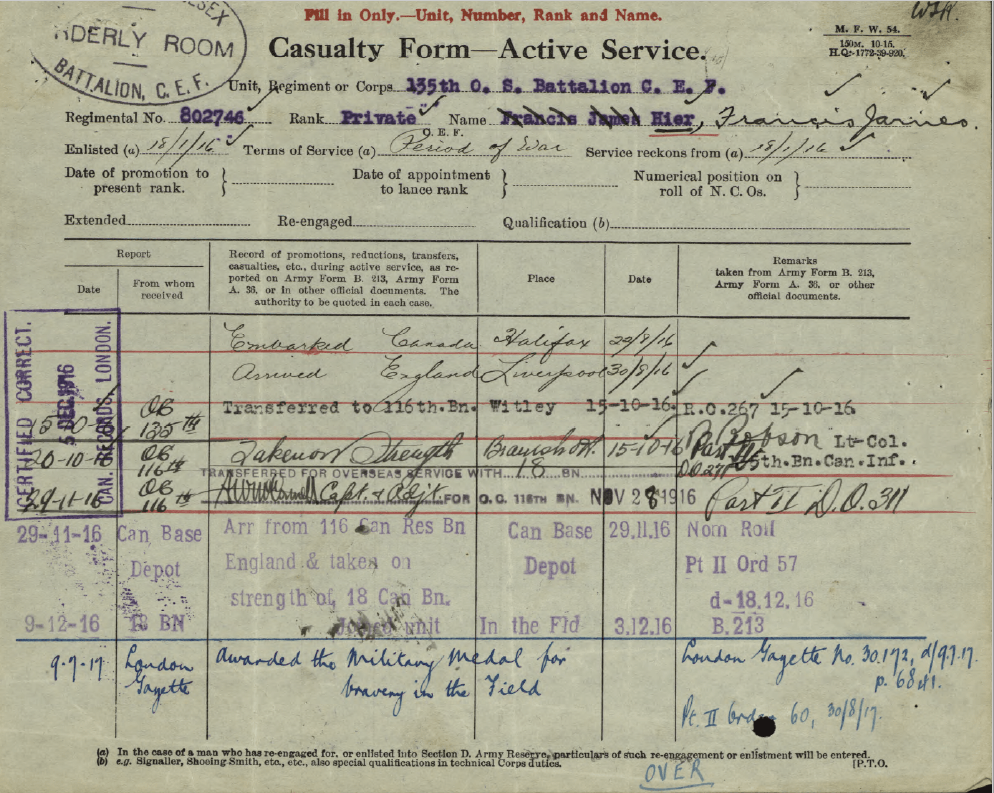 SEX
ORDERLY ROOM
BATTALION, C. E. F.
Fill in Only.—Unit, Number, Rank and Name.
M. F. W. 54.
150M. 10-15.
H.Q.-1772-39-920.
Casualty Form—Active Service.
Unit, Regiment or Corps 135th O. S. Battalion C. E. F.
Regimental No. 802746 Rank Private Name Francis James Hier, Francis James.
C. E. F.
Enlisted (a) 18/1/16 Terms of Service (a) Period of War Service reckons from (a) 18/1/16
Date of promotion to present rank. } Date of appointment to lance rank } Numerical position on roll of N. C. Os. }
Extended Re-engaged Qualification (b)
Report
Date From whom received
Record of promotions, reductions, transfers, casualties, etc., during active service, as reported on Army Form B. 213, Army Form A. 36, or in other official documents. The authority to be quoted in each case.
Place
Date
Remarks taken from Army Form B. 213, Army Form A. 36, or other official documents.
CERTIFIED CORRECT.
5 DEC 1916
CAN. RECORDS, LONDON.
Embarked Canada Halifax 22/8/16
Arrived England Liverpool 30/8/16
OC 135th Transferred to 116th.Bn. Witley 15-10-16. R.O.267 15-10-16.
Lt-Col.
20-10-16 OC 116th Taken on Strength 15-10-16 Part II D.O. 135th.Bn.Can.Inf.
TRANSFERRED FOR OVERSEAS SERVICE WITH 18 BN
29-11-16 OC 116th Capt. & Adjt. FOR O.C. 116TH BN. NOV 28 1916 Part II D.O. 311
29-11-16 Can Base Depot Arr from 116 Can Res Bn Can Base Depot 29.11.16 Nom Roll
England & taken on Pt II Ord 57
strength of, 18 Can Bn. d-18,12,16
9-12-16 18 BN Joined unit In the Fld 3.12.16 B.213
9-7-17 London Gazette Awarded the Military Medal for bravery in the Field London Gazette No. 30172, d/9.7.17. p. 6841.
Pt. II Order 60, 30/8/17.
(a) In the case of a man who has re-engaged for, or enlisted into Section D. Army Reserve, particulars of such re-engagement or enlistment will be entered.
(b) e.g. Signaller, Shoeing Smith, etc., etc., also special qualifications in technical Corps duties. [P.T.O.
OVER